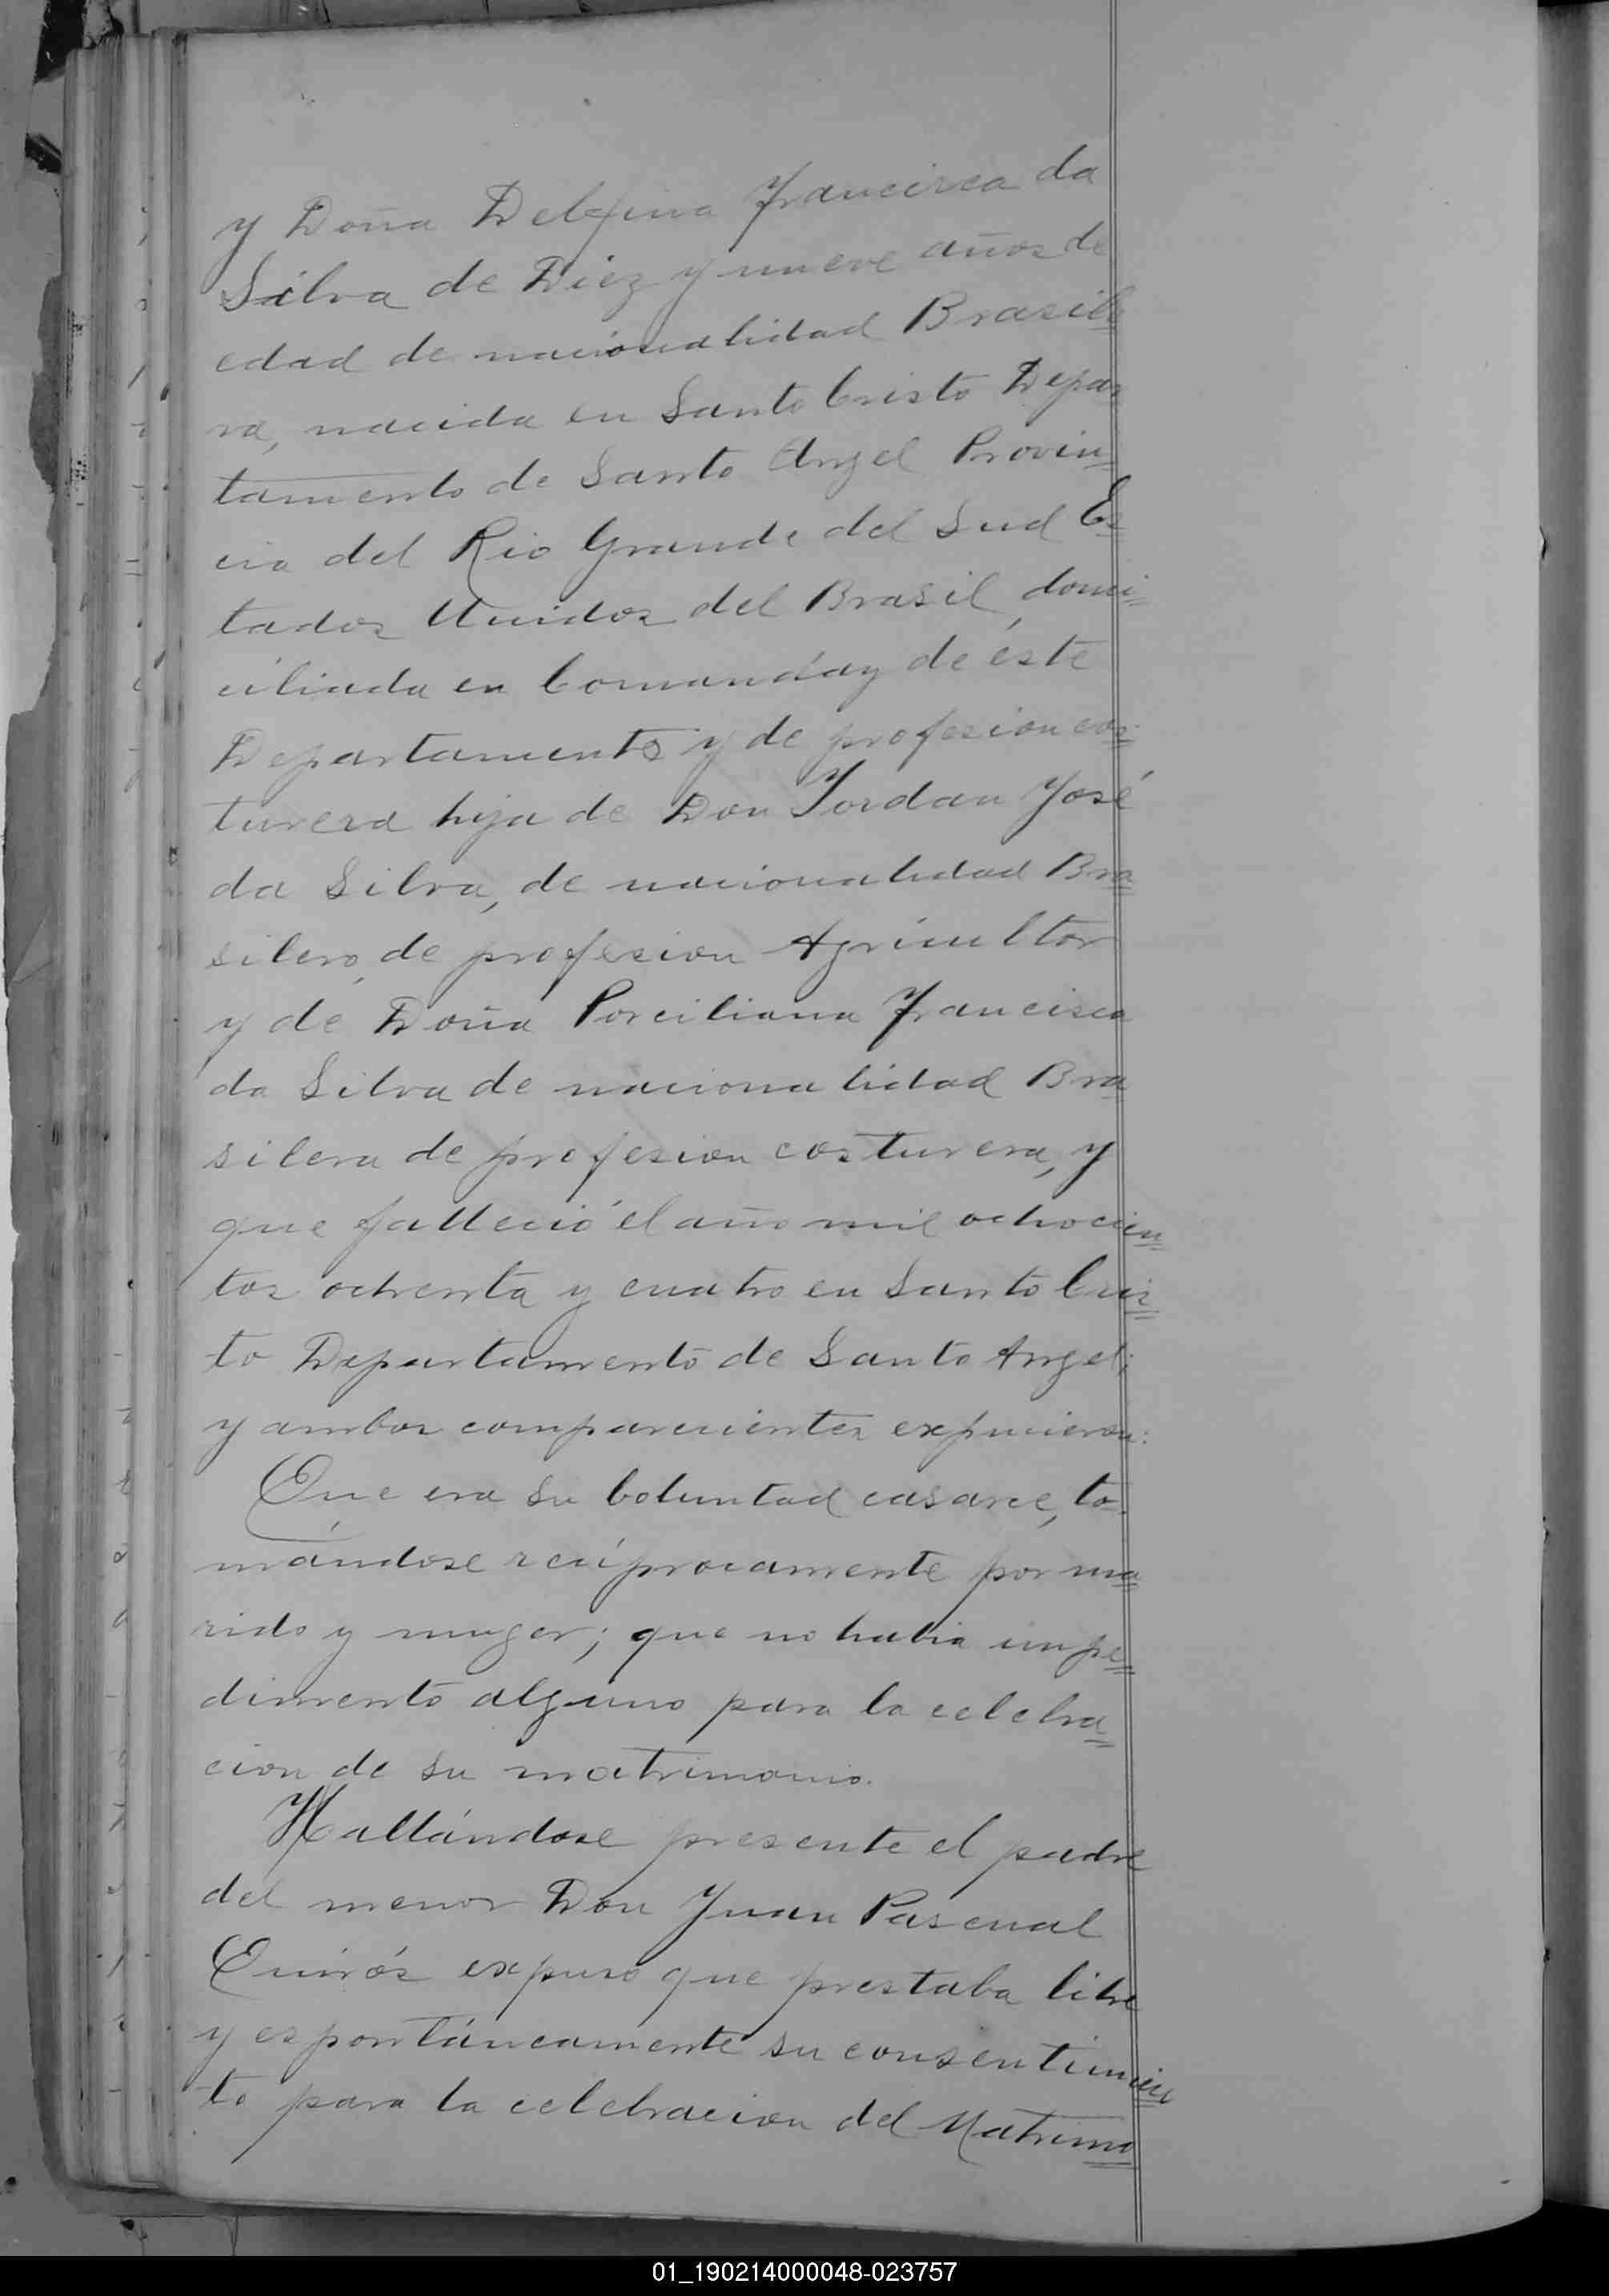 y Doña Delfina Francisca da
Silva de Diez y nueve años de
edad de nacionalidad Brasile
ra, nacida en Santo Cristo Depar
tamento de Santo Angel Provin=
cia del Rio Grande del Sud Es
tados Unidos del Brasil, domi=
ciliada en Comanday de este
Departamento y de profesion cos=
turera hija de Don Jordan José
da Silva, de nacionalidad Bra
silero, de profesion Agricultor
y de Doña Porciliana Francisca
da Silva de nacionalidad Bra
silera de profesion costurera, y
que falleció el año mil ochocien=
tos ochenta y cuatro en Santo Cris=
to Departamento de Santo Angel;
y ambos comparecientes expucieron:
Que era su boluntad casarce, to=
mándose recíprocamente por ma=
rido y muger; que no habia impe=
dimento alguno para la celebra=
cion de su matrimonio.
Hallándose presente el padre
del menor Don Juan Pascual
Quirós expuso que prestaba libre
y espontáneamente su consentimien=
to para la celebracion del Matrimo=
01_190214000048-023757